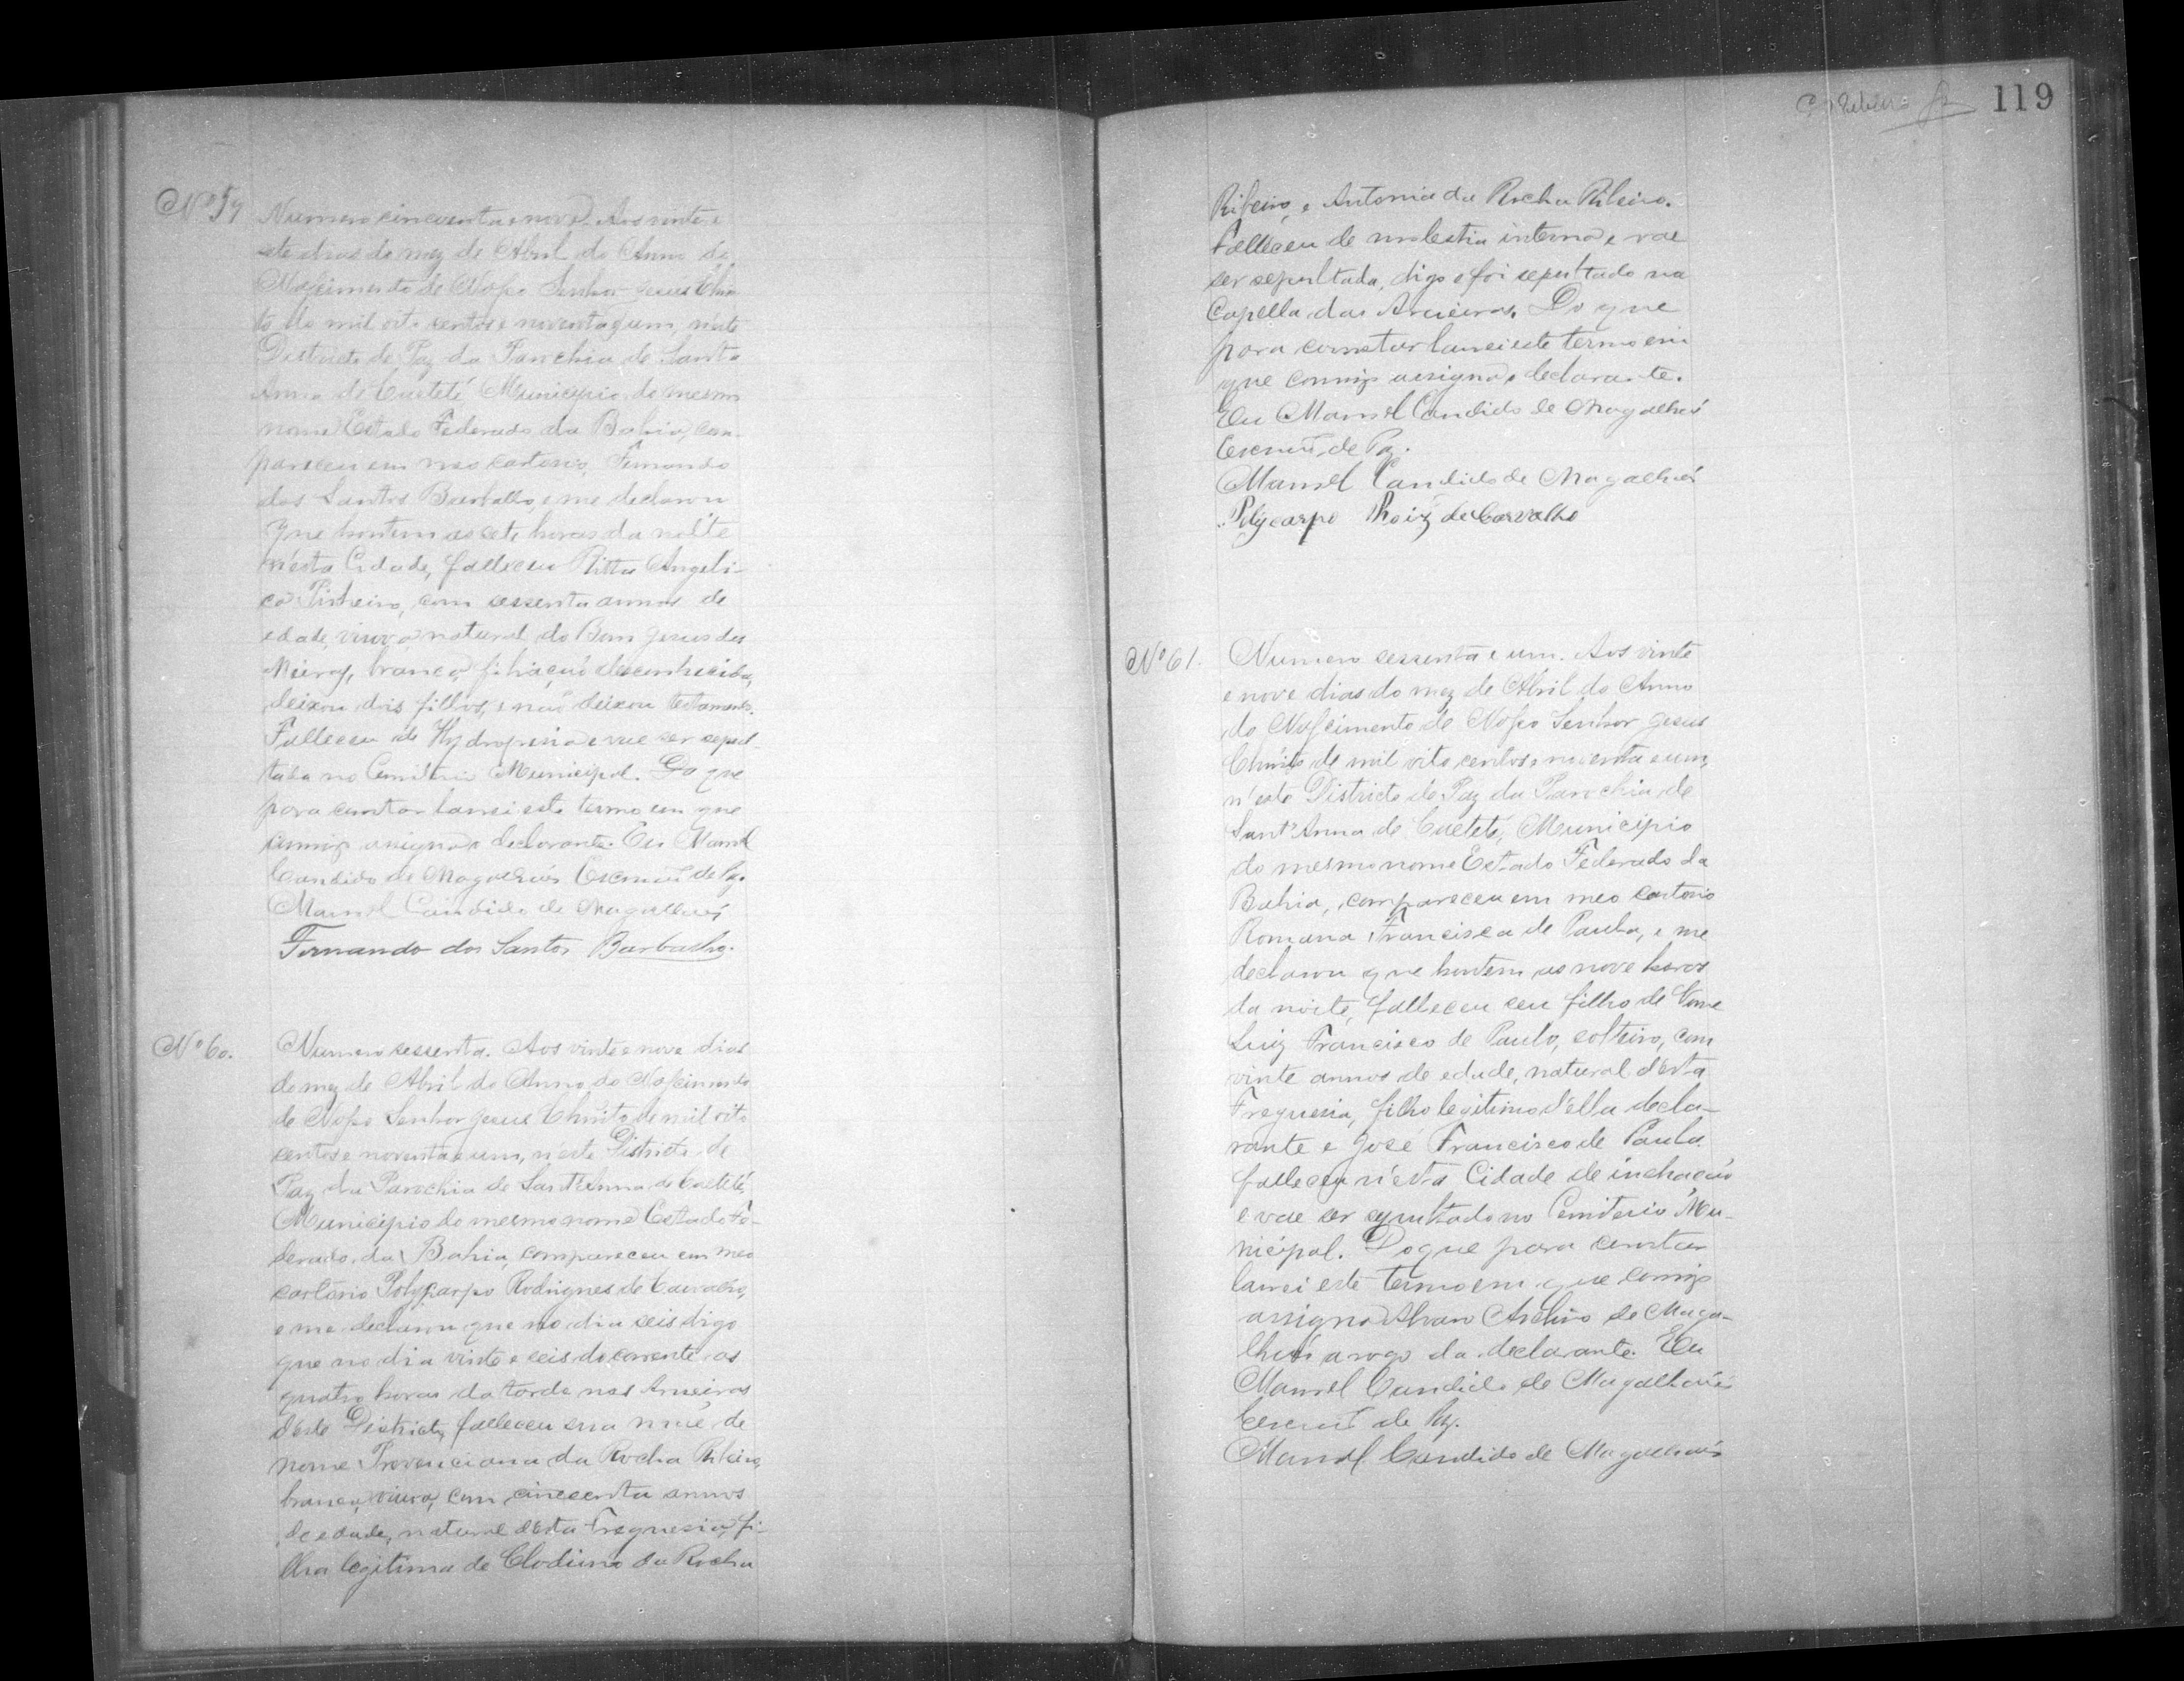 Nº 59
Numero cincoenta e nove. Aos vinte e
sete dias do mez de Abril do Anno do
Nascimento de Nosso Senhor Jesus Chris
to de mil oito centos e noventa e um, n'este
Districto de Paz da Parochia de Santa
Anna de Caeteté Municipio do mesmo
nome Estado Federado da Bahia, com-
pareceu em meo cartorio, Fernando
dos Santos Barbalho, e me declarou
que hontem as sete horas da noite
n'esta Cidade, falleceu Ritta Angeli-
ca Pinheiro, com sessenta annos de
edade, viuva, natural do Bom Jesus dos
Meiras, branca, filiação desconhecida,
deixou dois filhos, e não deixou testamento.
Falleceu de Hydropesia e vae ser sepul-
tada no Cemiterio Municipal. Do que
para constar lancei este termo em que
commigo assigna o declarante. Eu Manoel
Candido de Magalhães Escrivão de Paz.
Manoel Candido de Magalhães
Fernando dos Santos Barbalho.
Nº 60.
Numero sessenta. Aos vinte e nove dias
do mez de Abril do Anno do Nascimento
de Nosso Senhor Jesus Christo de mil oito
centos e noventa e um, n'este Districto de
Paz da Parochia de Sant'Anna de Caeteté,
Municipio do mesmo nome Estado Fe-
derado da Bahia, compareceu em meo
cartorio Polycarpo Rodrigues de Carvalho,
e me declarou que no dia seis digo
que no dia vinte e seis do corrente as
quatro horas da tarde nas
d'este Districto, falleceu sua mãe de
nome Provenciana da Rocha Ribeiro,
branca, viuva, com cincoenta annos
de edade, natural d'esta Freguesia, fi-
lha legitima de Clodiano da Rocha
119
Ribeiro, e Antonia da Rocha Ribeiro.
Falleceu de molestia interna e vae
ser sepultada, digo e foi sepultado na
Capella das Do que
para constar lancei este termo em
que commigo assigna o declarante.
Eu Manoel Candido de Magalhães
Escrivão de Paz.
Manoel Candido de Magalhães
Polycarpo Roiz de Carvalho
Nº 61.
Numero sessenta e um. Aos vinte
e nove dias do mez de Abril do Anno
do Nascimento de Nosso Senhor Jesus
Christo de mil oito centos e noventa e um,
n'este Districto de Paz da Parochia de
Sant'Anna de Caeteté, Municipio
do mesmo nome Estado Federado da
Bahia, compareceu em meo cartorio
Romana Francisca de Paula, e me
declarou que hontem as nove horas
da noite, falleceu seu filho de nome
Luiz Francisco de Paula, solteiro, com
vinte annos de edade, natural d'esta
Freguesia, filho legitimo d'ella decla-
rante e José Francisco de Paula.
falleceu n'esta Cidade de inchação
e vae ser sepultado no Cemiterio Mu-
nicipal. Do que para constar
lancei este termo em que commigo
assigna Alvaro de Maga-
lhães a rogo da declarante. Eu
Manoel Candido de Magalhães
Escrivão de Paz.
Manoel Candido de Magalhães